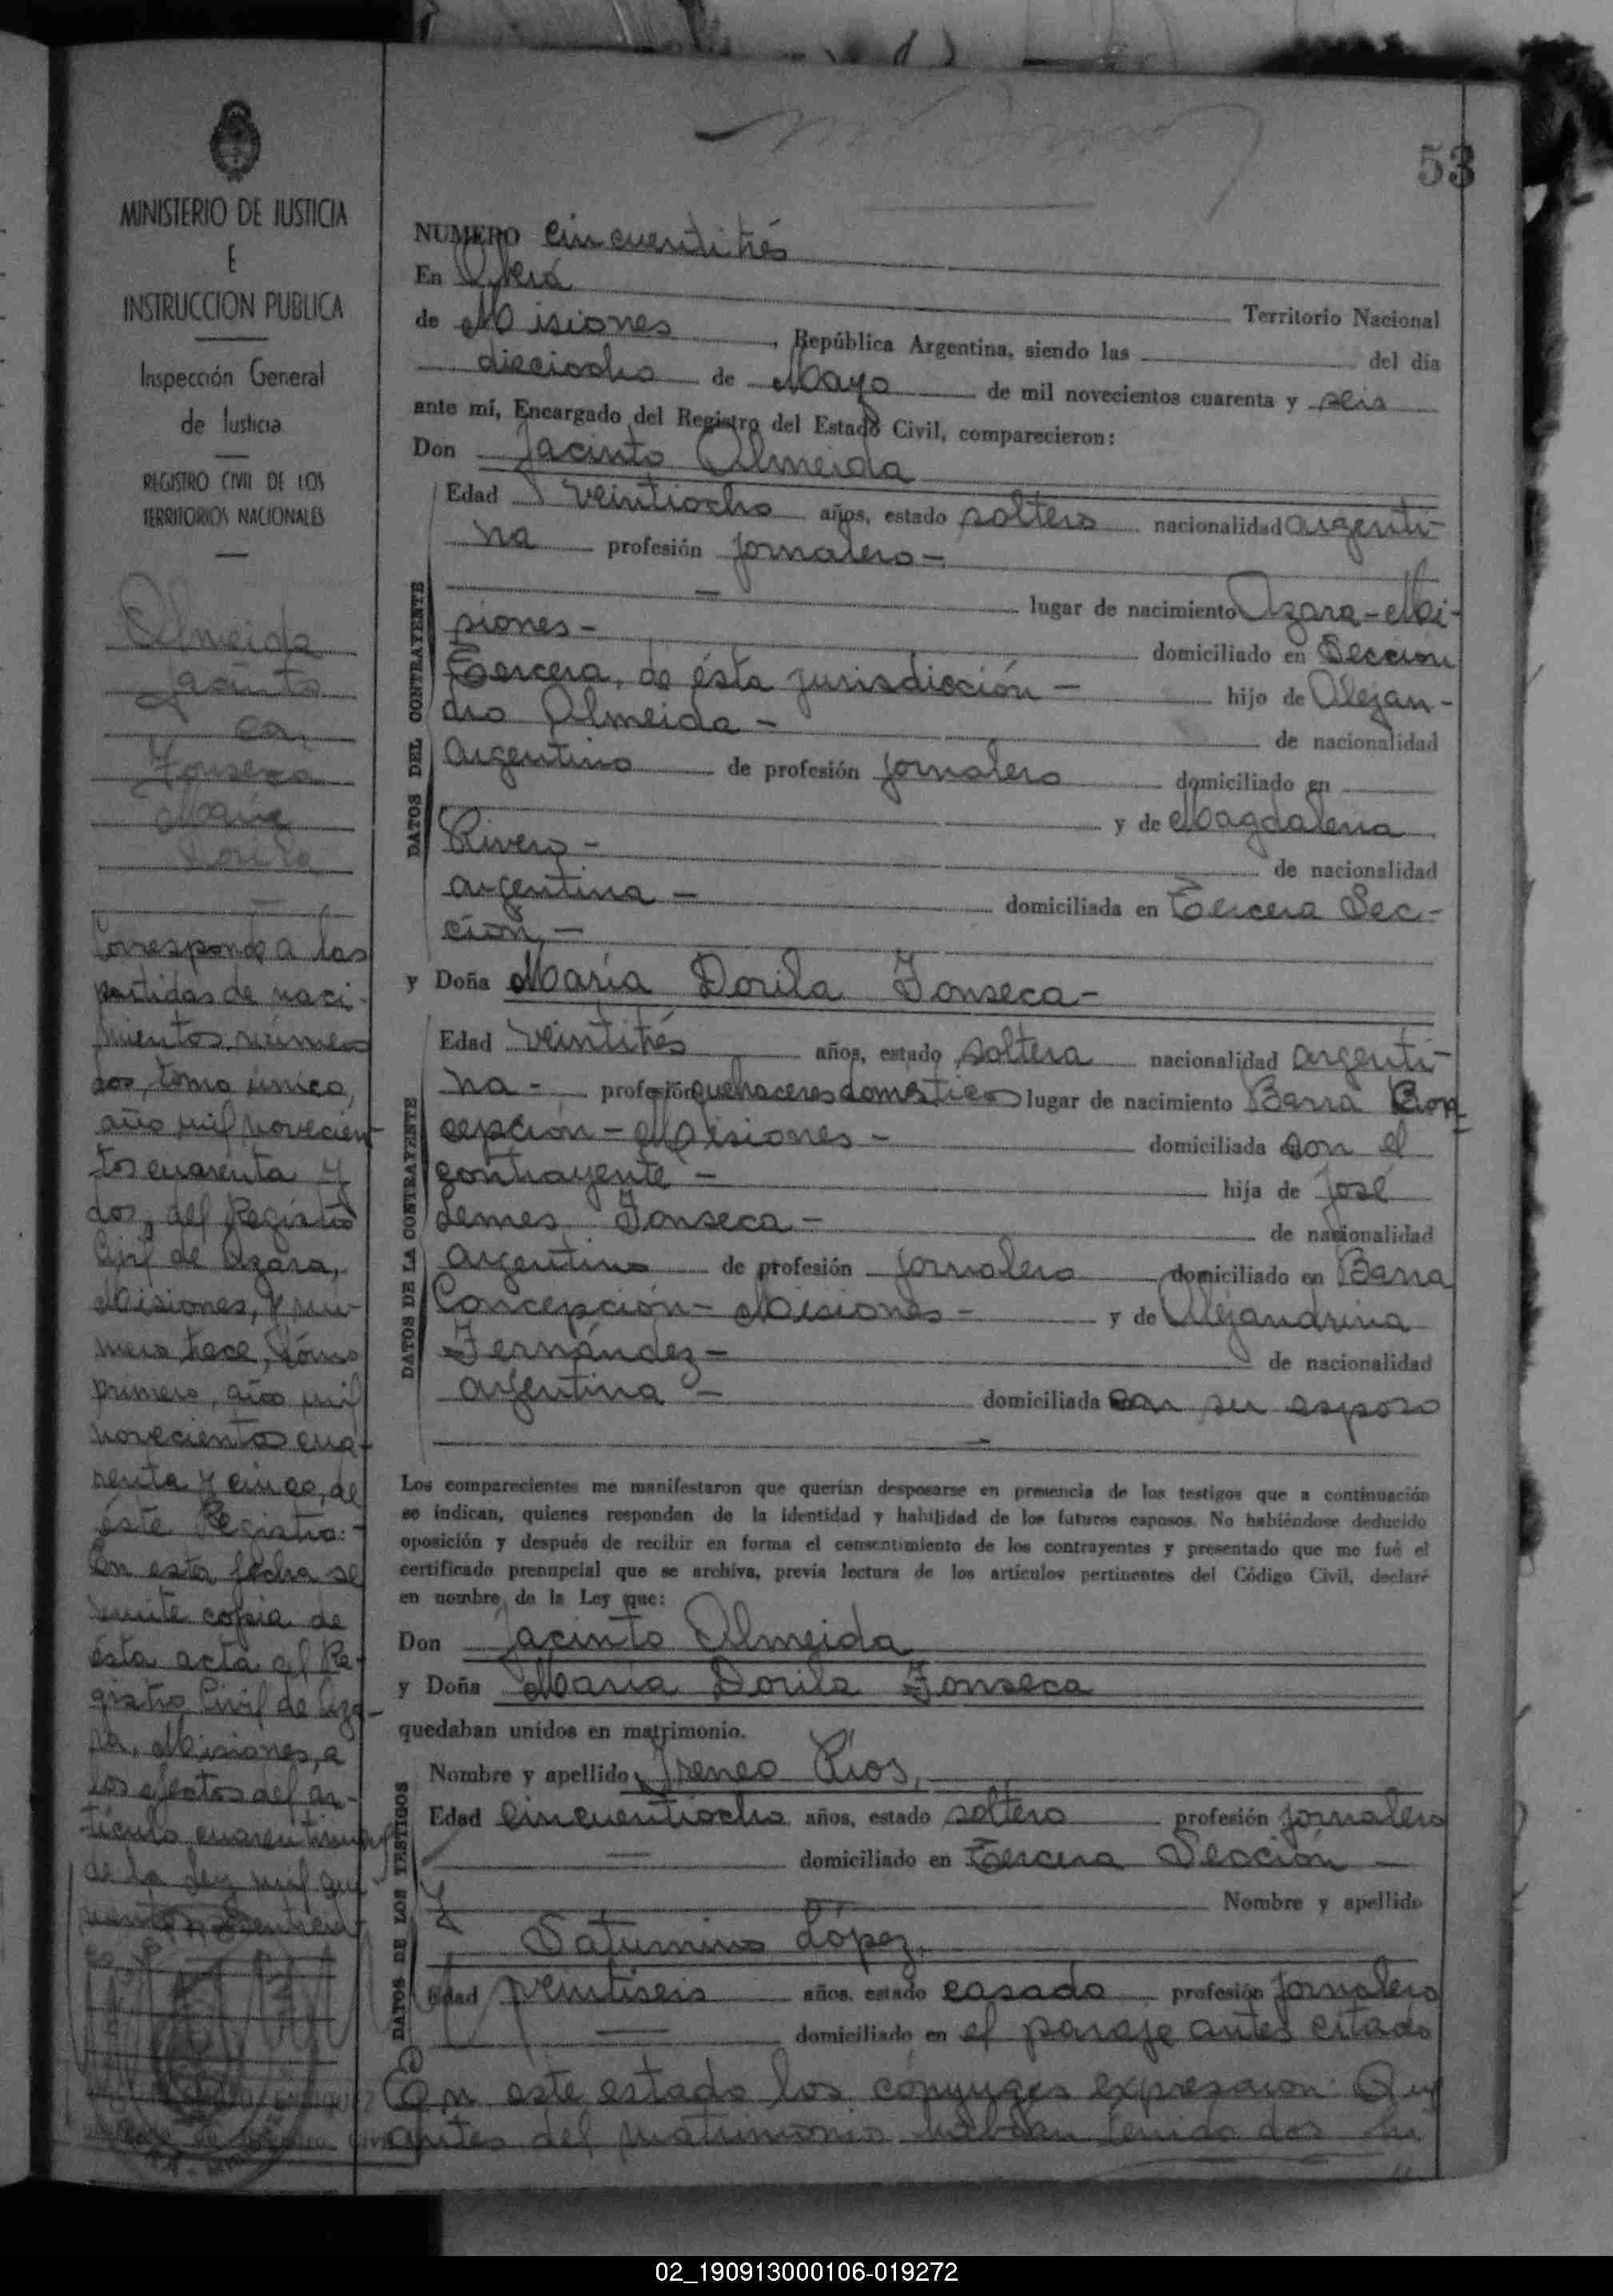 53
MINISTERIO DE JUSTICIA
E
INSTRUCCION PUBLICA
Inspección General
de Justicia
REGISTRO CIVIL DE LOS
TERRITORIOS NACIONALES
Almeida
Jacinto
con
Fonseca
María
Dorila
Corresponde a las
partidas de naci-
mientos número
dos, tomo único,
año mil novecien-
tos cuarenta y
dos, del Registro
Civil de Azara,
Misiones, y nú-
mero trece, tomo
primero, año mil
novecientos cua-
renta y cinco, de
éste Registro.-
En esta fecha se
remite copia de
ésta acta al Re-
gistro Civil de Aza-
ra, Misiones, a
los efectos del ar-
tículo
de la Ley mil qui-
NUMERO cincuentitrés
En Oberá
Territorio Nacional
de Misiones, República Argentina, siendo las del día
dieciocho de Mayo de mil novecientos cuarenta y seis
ante mí, Encargado del Registro del Estado Civil, comparecieron:
Don Jacinto Almeida
DATOS DEL CONTRAYENTE
Edad veintiocho años, estado soltero nacionalidad argenti-
na profesión jornalero -
lugar de nacimiento Azara - Mi-
siones - domiciliado en Sección
Tercera, de ésta jurisdicción - hijo de Alejan-
dro Almeida - de nacionalidad
argentino de profesión jornalero domiciliado en
y de Magdalena
Rivero - de nacionalidad
argentina - domiciliada en Tercera Sec-
ción, -
y Doña María Dorila Fonseca -
DATOS DE LA CONTRAYENTE
Edad veintitrés años, estado soltera nacionalidad argenti-
na - profesión quehaceres domésticos lugar de nacimiento Barra Con
cepción - Misiones - domiciliada con el
contrayente - hija de José
Lemes Fonseca - de nacionalidad
argentino de profesión jornalero domiciliado en Barra
Concepción - Misiones - y de Alejandrina
Fernández - de nacionalidad
argentina - domiciliada con su esposo
Los comparecientes me manifestaron que querían desposarse en presencia de los testigos que a continuación
se indican, quienes responden de la identidad y habilidad de los futuros esposos. No habiéndose deducido
oposición y después de recibir en forma el consentimiento de los contrayentes y presentado que me fué el
certificado prenupcial que se archiva, previa lectura de los artículos pertinentes del Código Civil, declaré
en nombre de la Ley que:
Don Jacinto Almeida
y Doña María Dorila Fonseca
quedaban unidos en matrimonio.
DATOS DE LOS TESTIGOS
Nombre y apellido Ireneo Ríos,
Edad cincuentiocho años, estado soltero profesión jornalero
domiciliado en Tercera Sección -
Nombre y apellido
Saturnino López,
Edad veintiseis años, estado casado profesión jornalero
domiciliado en el paraje antes citado
En este estado los cónyuges expresaron: Que
antes del matrimonio habían tenido dos hi
02_190913000106-019272